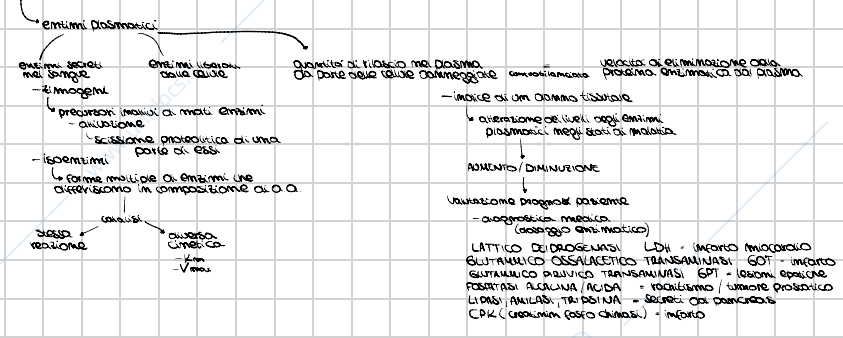 enzimi plasmatici
enzimi secreti
nel sangue
- zimogeni
precursori inattivi di molti enzimi
- attivazione
scissione proteolitica di una
parte di essi
- isoenzimi
forme multiple di enzimi che
differiscono in composizione di a.a.
catalisi
stessa
reazione
diversa
cinetica
- Km
- Vmax
enzimi liberati
dalle cellule
quantità di rilascio nel plasma
da parte delle cellule danneggiate controbilanciata
velocità di eliminazione della
proteina enzimatica dal plasma
- indice di un danno tissutale
alterazione dei livelli degli enzimi
plasmatici negli stati di malattia
AUMENTO / DIMINUZIONE
valutazione prognosi paziente
- diagnostica medica
(dosaggio enzimatico)
LATTICO DEIDROGENASI LDH - infarto miocardio
GLUTAMMICO OSSALACETICO TRANSAMINASI GOT - infarto
GLUTAMMICO PIRUVICO TRANSAMINASI GPT - lesioni epatiche
FOSFATASI ALCALINA / ACIDA - rachitismo / tumore prostatico
LIPASI, AMILASI, TRIPSINA - secreti dal pancreas
CPK (creatinin fosfo chinasi) - infarto